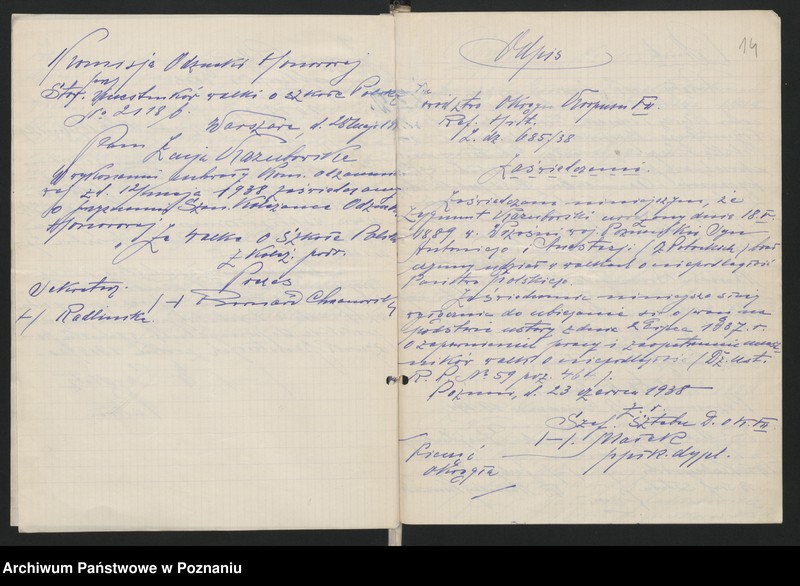 Komisja Odznaki Honorowej
przy
Stow. uczestników walki o szkołę Polską
No 2118
Warszawa, d. 28 maja
Pani
Łucja Kaźuborska
W wykonaniu uchwały Kom. odznaczeń
z d. 12 maja 1938 zaświadczamy
o przyznaniu Szan. Koleżance Odznaki
Honorowej
"Za Walkę o Szkołę Polską
z Koleż. pozdr.
Prezes
Sekretarz
/-/ Bernard Chrzanowski
/-/ Radlińska
14
Odpis
Dowództwo Okręgu Korpusu VII.
Ref. Hist.
L. dz. 685/38
Zaświadczenie.
Zaświadczam niniejszym, że
Zygmunt urodzony dnia 18.
1889 r. Września woj. Poznański syn
Antoniego i Anastazji (z) brał
czynny udział w walkach o niepodległość
Państwa Polskiego.
Zaświadczenie niniejsze służy
do ubiegania się o pracę na
podstawie ustawy z dnia 2 lipca 1937 r.
o zapewnieniu pracy i zaopatrzeniu uczest-
ników walk o niepodległość (Dz. Ust.
R. P. No 59 poz. 464).
Poznań, d. 23 czerwca 1938
Szef Sztabu D. O. K. VII
/-/ Marek
ppłk. dypl.
Pieczęć
okrągła
Archiwum Państwowe w Poznaniu